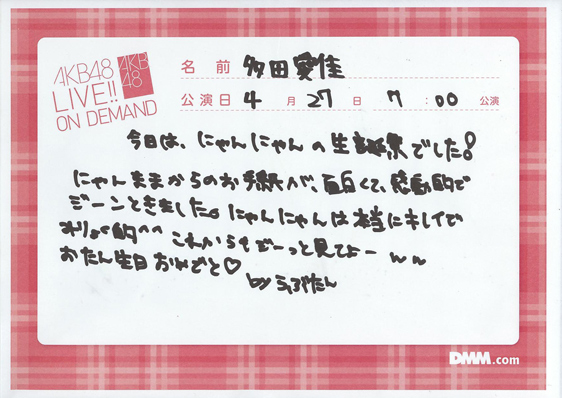 AKB48
LIVE!!
ON DEMAND
AKB
48
名 前 多田愛佳
公演日 4 月 27 日 7 : 00 公演
今日は、にゃんにゃんの生誕祭でした!
にゃんままからのお手紙が、面白くて、感動的で
ジーンときました。にゃんにゃんは本当にキレイで
^^ これからもずーっと見てよー ww
おたん生日おめでと♡
by らぶたん
DMM.com